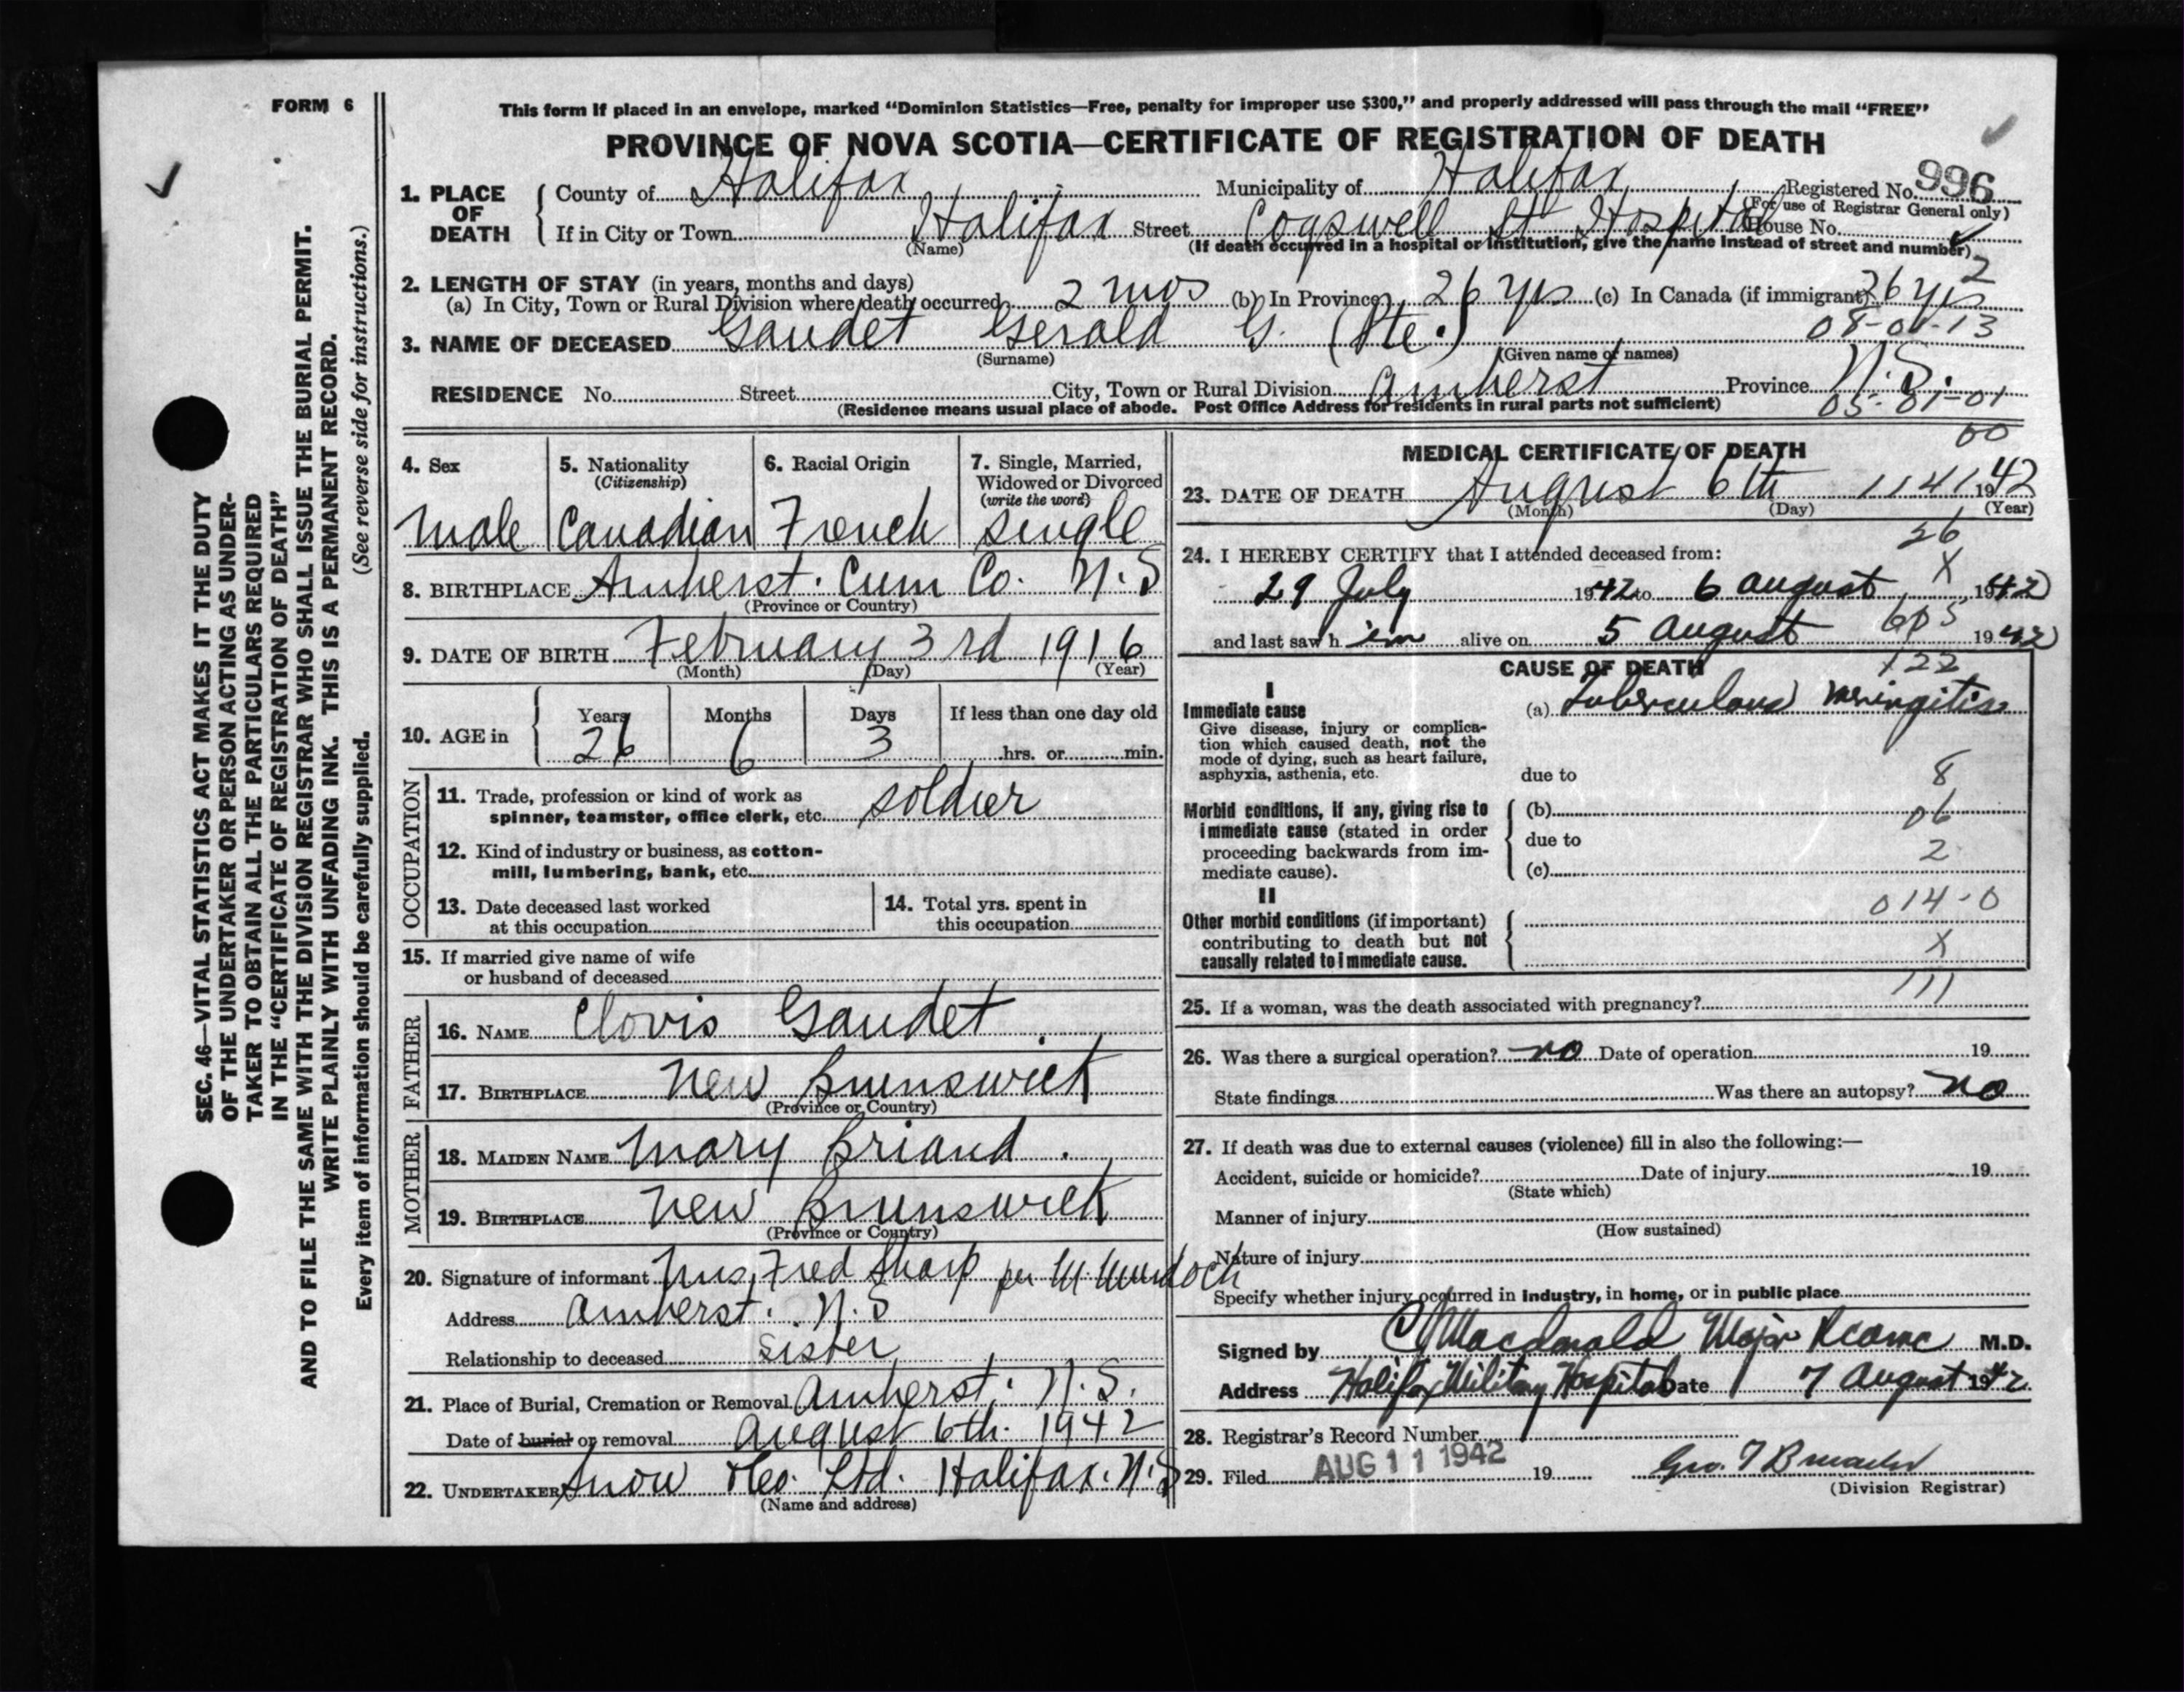 FORM 6
This form if placed in an envelope, marked “Dominion Statistics—Free, penalty for improper use $300,” and properly addressed will pass through the mail “FREE”
PROVINCE OF NOVA SCOTIA—CERTIFICATE OF REGISTRATION OF DEATH
1. PLACE OF DEATH
County of Halifax Municipality of Halifax Registered No. 996
(For use of Registrar General only)
If in City or Town Halifax Street Cogswell St Hospital House No.
(Name) (If death occurred in a hospital or institution, give the name instead of street and number)
2
2. LENGTH OF STAY (in years, months and days)
(a) In City, Town or Rural Division where death occurred 2 mos (b) In Province 26 yrs (c) In Canada (if immigrant) 26 yrs
08-01-13
3. NAME OF DECEASED Gaudet Gerald G. (Pte.)
(Surname) (Given name or names)
RESIDENCE No. Street City, Town or Rural Division Amherst Province N.S.
(Residence means usual place of abode. Post Office Address for residents in rural parts not sufficient) 05-01-01
4. Sex
Male
5. Nationality
(Citizenship)
Canadian
6. Racial Origin
French
7. Single, Married,
Widowed or Divorced
(write the word)
Single
8. BIRTHPLACE Amherst. Cum Co. N.S
(Province or Country)
9. DATE OF BIRTH February 3rd 1916
(Month) (Day) (Year)
10. AGE in
Years Months Days If less than one day old
26 6 3 hrs. or min.
OCCUPATION
11. Trade, profession or kind of work as
spinner, teamster, office clerk, etc. soldier
12. Kind of industry or business, as cotton-
mill, lumbering, bank, etc.
13. Date deceased last worked
at this occupation
14. Total yrs. spent in
this occupation
15. If married give name of wife
or husband of deceased
FATHER
16. NAME Clovis Gaudet
17. BIRTHPLACE New Brunswick
(Province or Country)
MOTHER
18. MAIDEN NAME Mary Briand.
19. BIRTHPLACE New Brunswick
(Province or Country)
20. Signature of informant Mrs Fred Sharp per M Murdoch
Address Amherst. N.S
Relationship to deceased sister
21. Place of Burial, Cremation or Removal Amherst. N.S.
Date of burial or removal August 6th. 1942
22. UNDERTAKER Snow & Co. Ltd. Halifax. N.S
(Name and address)
MEDICAL CERTIFICATE OF DEATH
00
23. DATE OF DEATH August 6th 1141 1942
(Month) (Day) (Year)
26
24. I HEREBY CERTIFY that I attended deceased from:
X
29 July 1942 to 6 August 1942
605
and last saw h im alive on 5 August 1942
CAUSE OF DEATH
122
I
Immediate cause
Give disease, injury or complica-
tion which caused death, not the
mode of dying, such as heart failure,
asphyxia, asthenia, etc.
(a) Tuberculous Meningitis
due to
8
Morbid conditions, if any, giving rise to
immediate cause (stated in order
proceeding backwards from im-
mediate cause).
(b)
06
due to
2
(c)
II
014-0
Other morbid conditions (if important)
contributing to death but not
causally related to immediate cause.
X
111
25. If a woman, was the death associated with pregnancy?
26. Was there a surgical operation? no Date of operation 19
State findings Was there an autopsy? no
27. If death was due to external causes (violence) fill in also the following:—
Accident, suicide or homicide? Date of injury 19
(State which)
Manner of injury
(How sustained)
Nature of injury
Specify whether injury occurred in industry, in home, or in public place
Signed by Macdonald Major RCAMC M.D.
Address Halifax Military Hospital Date 7 August 1942
28. Registrar's Record Number
29. Filed AUG 11 1942 19
(Division Registrar)
SEC. 46—VITAL STATISTICS ACT MAKES IT THE DUTY
OF THE UNDERTAKER OR PERSON ACTING AS UNDER-
TAKER TO OBTAIN ALL THE PARTICULARS REQUIRED
IN THE “CERTIFICATE OF REGISTRATION OF DEATH”
AND TO FILE THE SAME WITH THE DIVISION REGISTRAR WHO SHALL ISSUE THE BURIAL PERMIT.
WRITE PLAINLY WITH UNFADING INK. THIS IS A PERMANENT RECORD.
Every item of information should be carefully supplied. (See reverse side for instructions.)